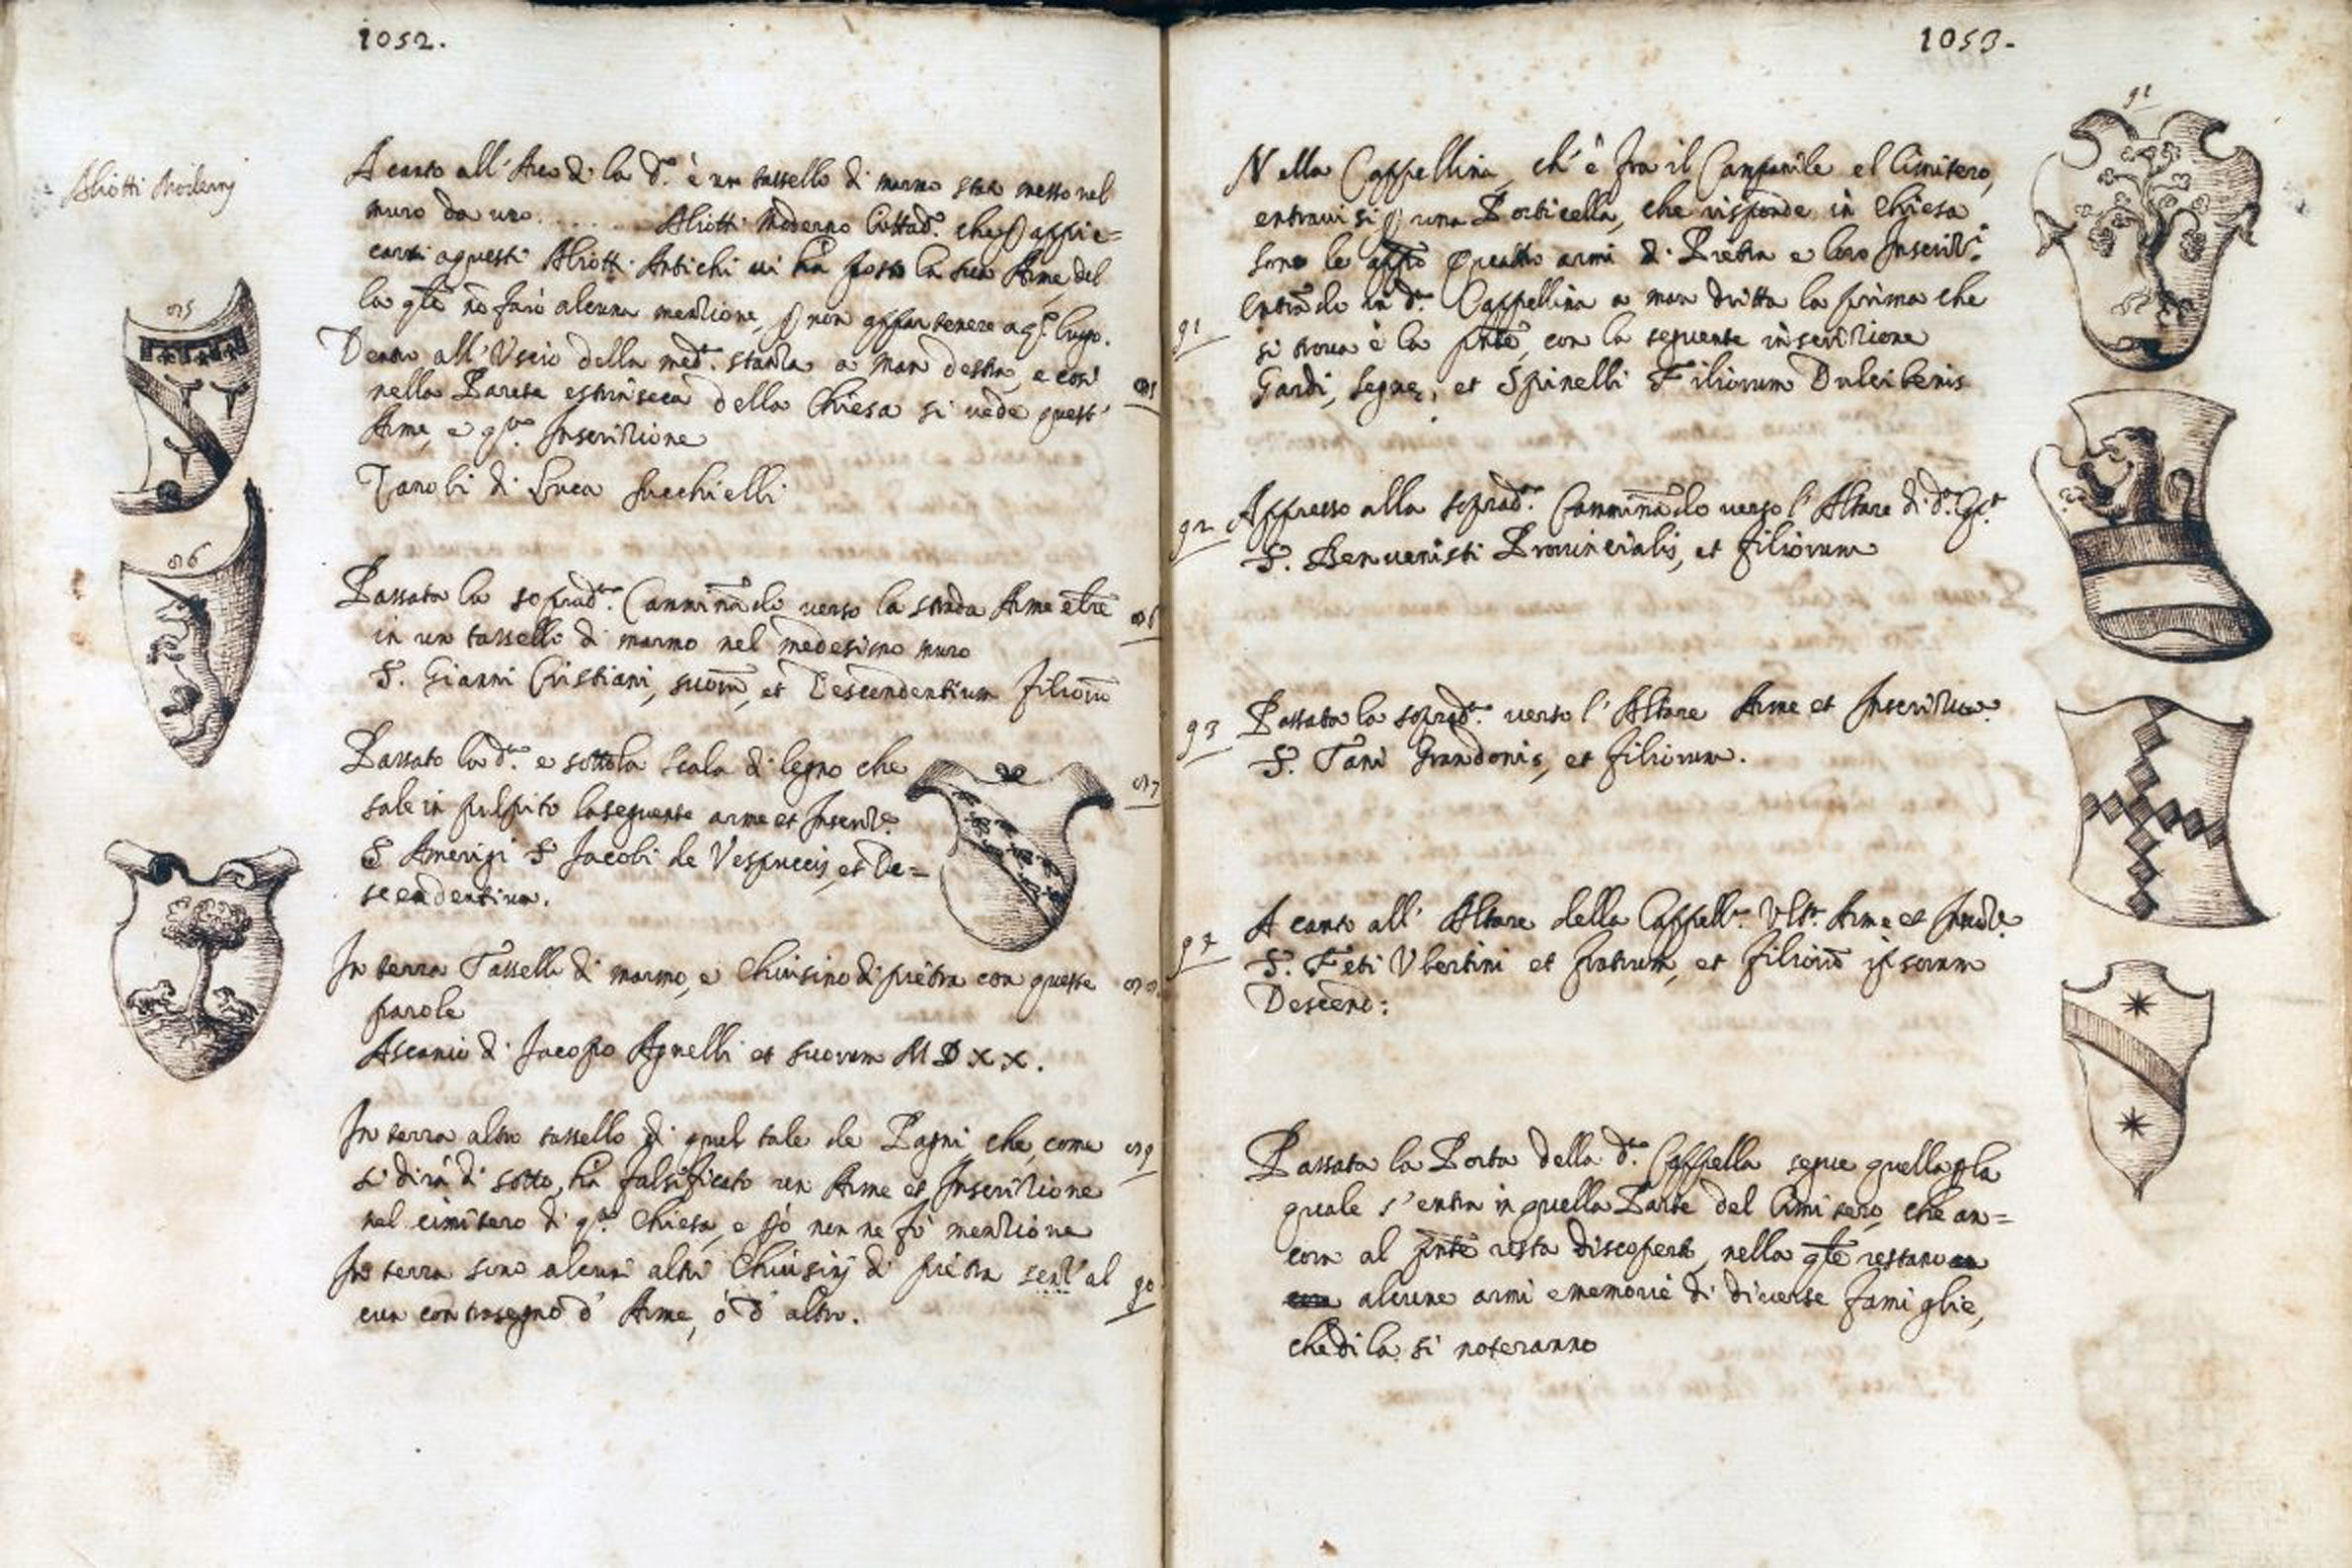 1052.
Aliotti Moderni
A canto all' Arco di la d.ª è un tassello di marmo stato messo nel
muro da uno . . . . . . Aliotti Moderno Cittad.º che p appic=
carsi a questi Aliotti Antichi vi ha posto la sua Arme, del
la q̃le nõ farò alcuna menzione, p non appartenere a q.º luogo.
Dentro all' Uscio della med.ª stanza a man destra, e così
nella Parete estrinseca della Chiesa si vede quest'
Arme, e q.ta Inscrizione
85
Zanobi di Luca Succhielli
Passata la soprad.ta Camminãdo verso la strada Arme et
in un tassello di marmo nel medesimo muro
86
S. Gianni Cristiani, suorũ, et Descendentium filiorũ
Passato la d.ta e sotto la scala di legno che
sale in pulpito la seguente arme et Inscriz.e
87
S Amerigi S Jacobi de Vespuccis, et De=
scendentium.
In terra Tassello di marmo, e Chiusino di pietra con queste
88.
parole
Ascanio di Jacopo Agnelli et suorum MDXX.
In terra altro tassello di quel tale de Pagni, che, come
89
si dirà di sotto, ha falsificato un Arme et Inscrizione
nel cimitero di q.ta Chiesa, e pò non ne fo menzione
In terra sono alcuni altri Chiusinj di pietra senz' al
90
cun contrasegno d' Arme, ò d' altro.
85
86
1053.
91
Nella Cappellina, ch' è fra il Campanile el Cimitero,
entravisi p una Porticella, che risponde in Chiesa
sono le app.º Quattro armi di Pietra e loro Inscriz.i
Entrãdo in d.ª Cappellina a man dritta la prima che
91
si trova è la pñte, con la seguente inscrizione
Gardi, Segne, et Spinelli Filiorum Dulcibenis
92 Appresso alla soprad.ta Camminãdo verso l' Altare di d.ª
S. Benvenisti Provincialis, et filiorum
93 Passata la soprad.ta verso l' Altare Arme et Inscrizione
S. Tani Grandonis, et filiorum.
A canto all' Altare della Cappell.ª Ult.ª Arme et Inscriz.e
94
S. Feti Ubertini et fratrum, et filiorũ ipsorum
Descend:
Passata la Porta della d.ta Cappella segue quella p la
quale s' entra in quella Parte del Cimitero, che an=
cora al pñte resta discoperta, nella q̃le restano
alcune armi e memorie di diverse famiglie,
che di la si noteranno